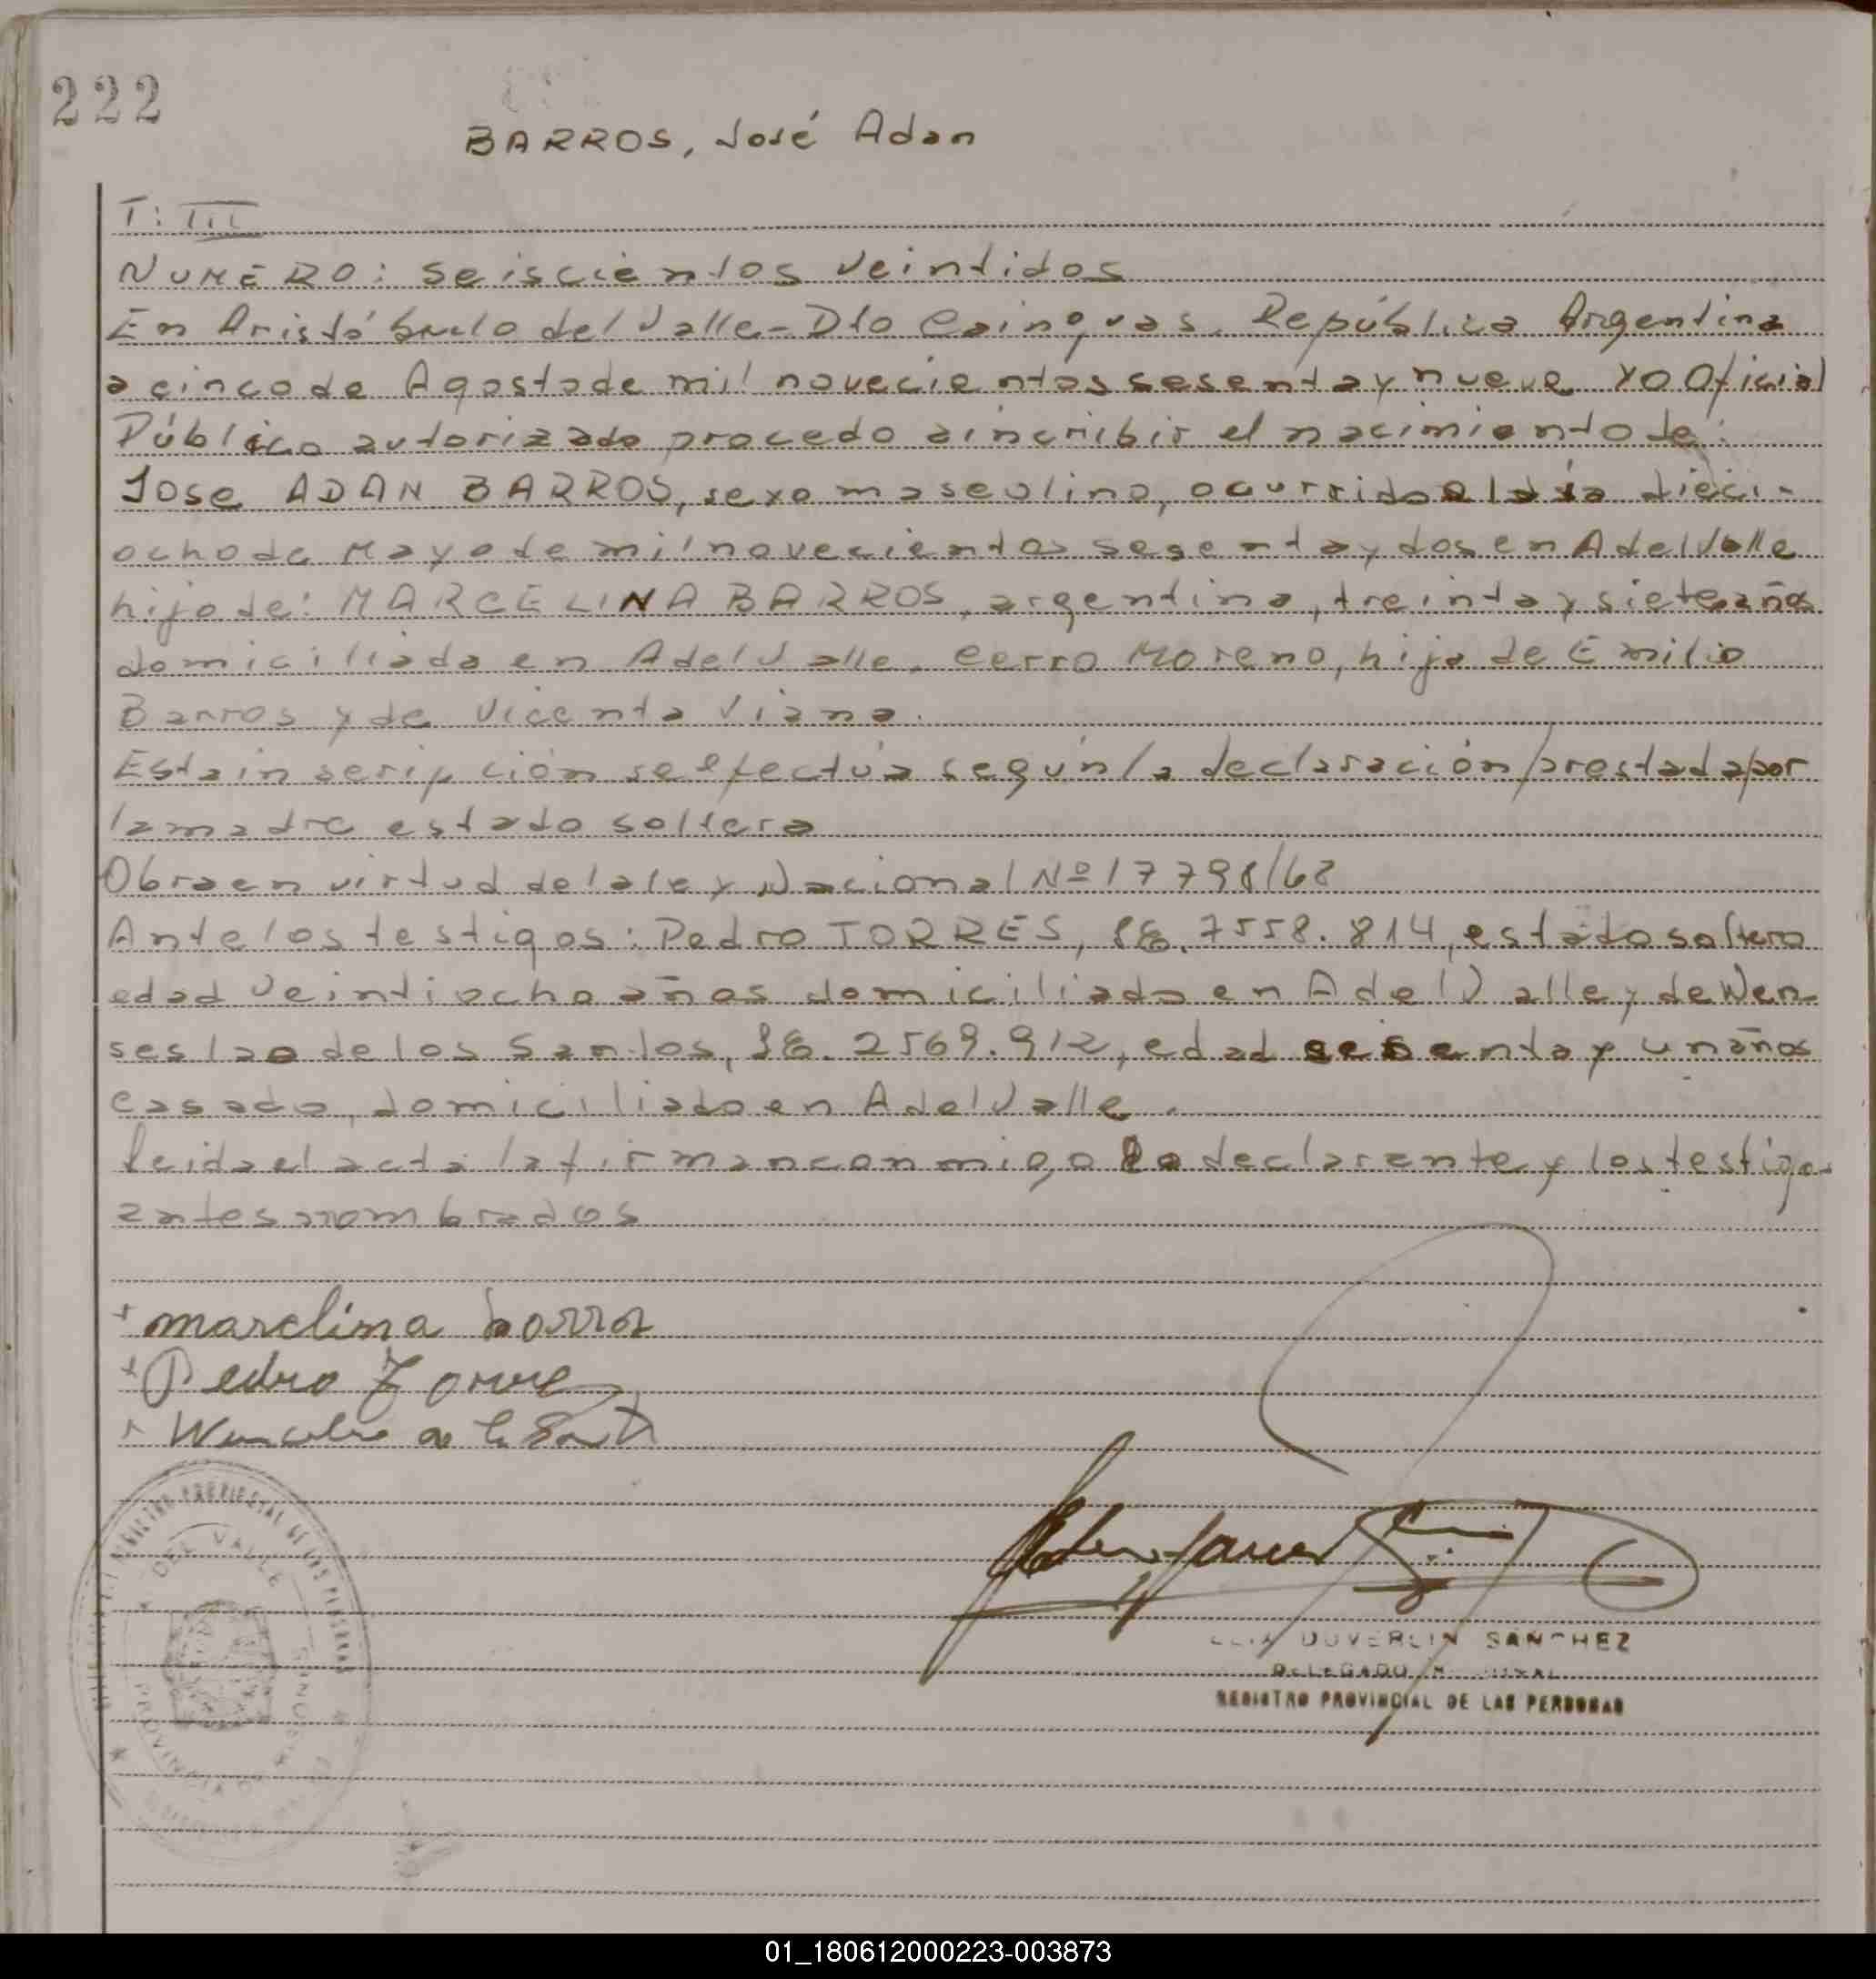 222
BARROS, José Adan
T: III
NUMERO: seiscientos veintidos
En Aristóbulo del Valle - Dto Cainguas. República Argentina
a cinco de Agosto de mil novecientos sesenta y nueve yo Oficial
Público autorizado procedo a incribir el nacimiento de:
Jose ADAN BARROS, sexo masculino, ocurrido el día dieci-
ocho de Mayo de mil novecientos sesenta y dos en A del Valle
hijo de: MARCELINA BARROS, argentina, treinta y siete años
domiciliada en A del Valle, Cerro Moreno, hija de Emilio
Barros y de Vicenta Viana.
Esta inscripción se efectúa según la declaración prestada por
la madre estado soltera
Obra en virtud de la ley Nacional Nº 17798/68
Ante los testigos: Pedro TORRES, LE. 7558.814, estado soltero
edad veintiocho años domiciliado en A del Valle y de Wen-
seslao de los Santos, LE. 2569.912, edad sesenta y un años
casado, domiciliado en A del Valle.
Leida el acta la firman conmigo la declarante y los testigos
antes nombrados
+ marclina borros
+ Pedro Torre
DEL VALLE
PROVINCIA
DUVERLIN SANCHEZ
DELEGADO
REGISTRO PROVINCIAL DE LAS PERSONAS
01_180612000223-003873